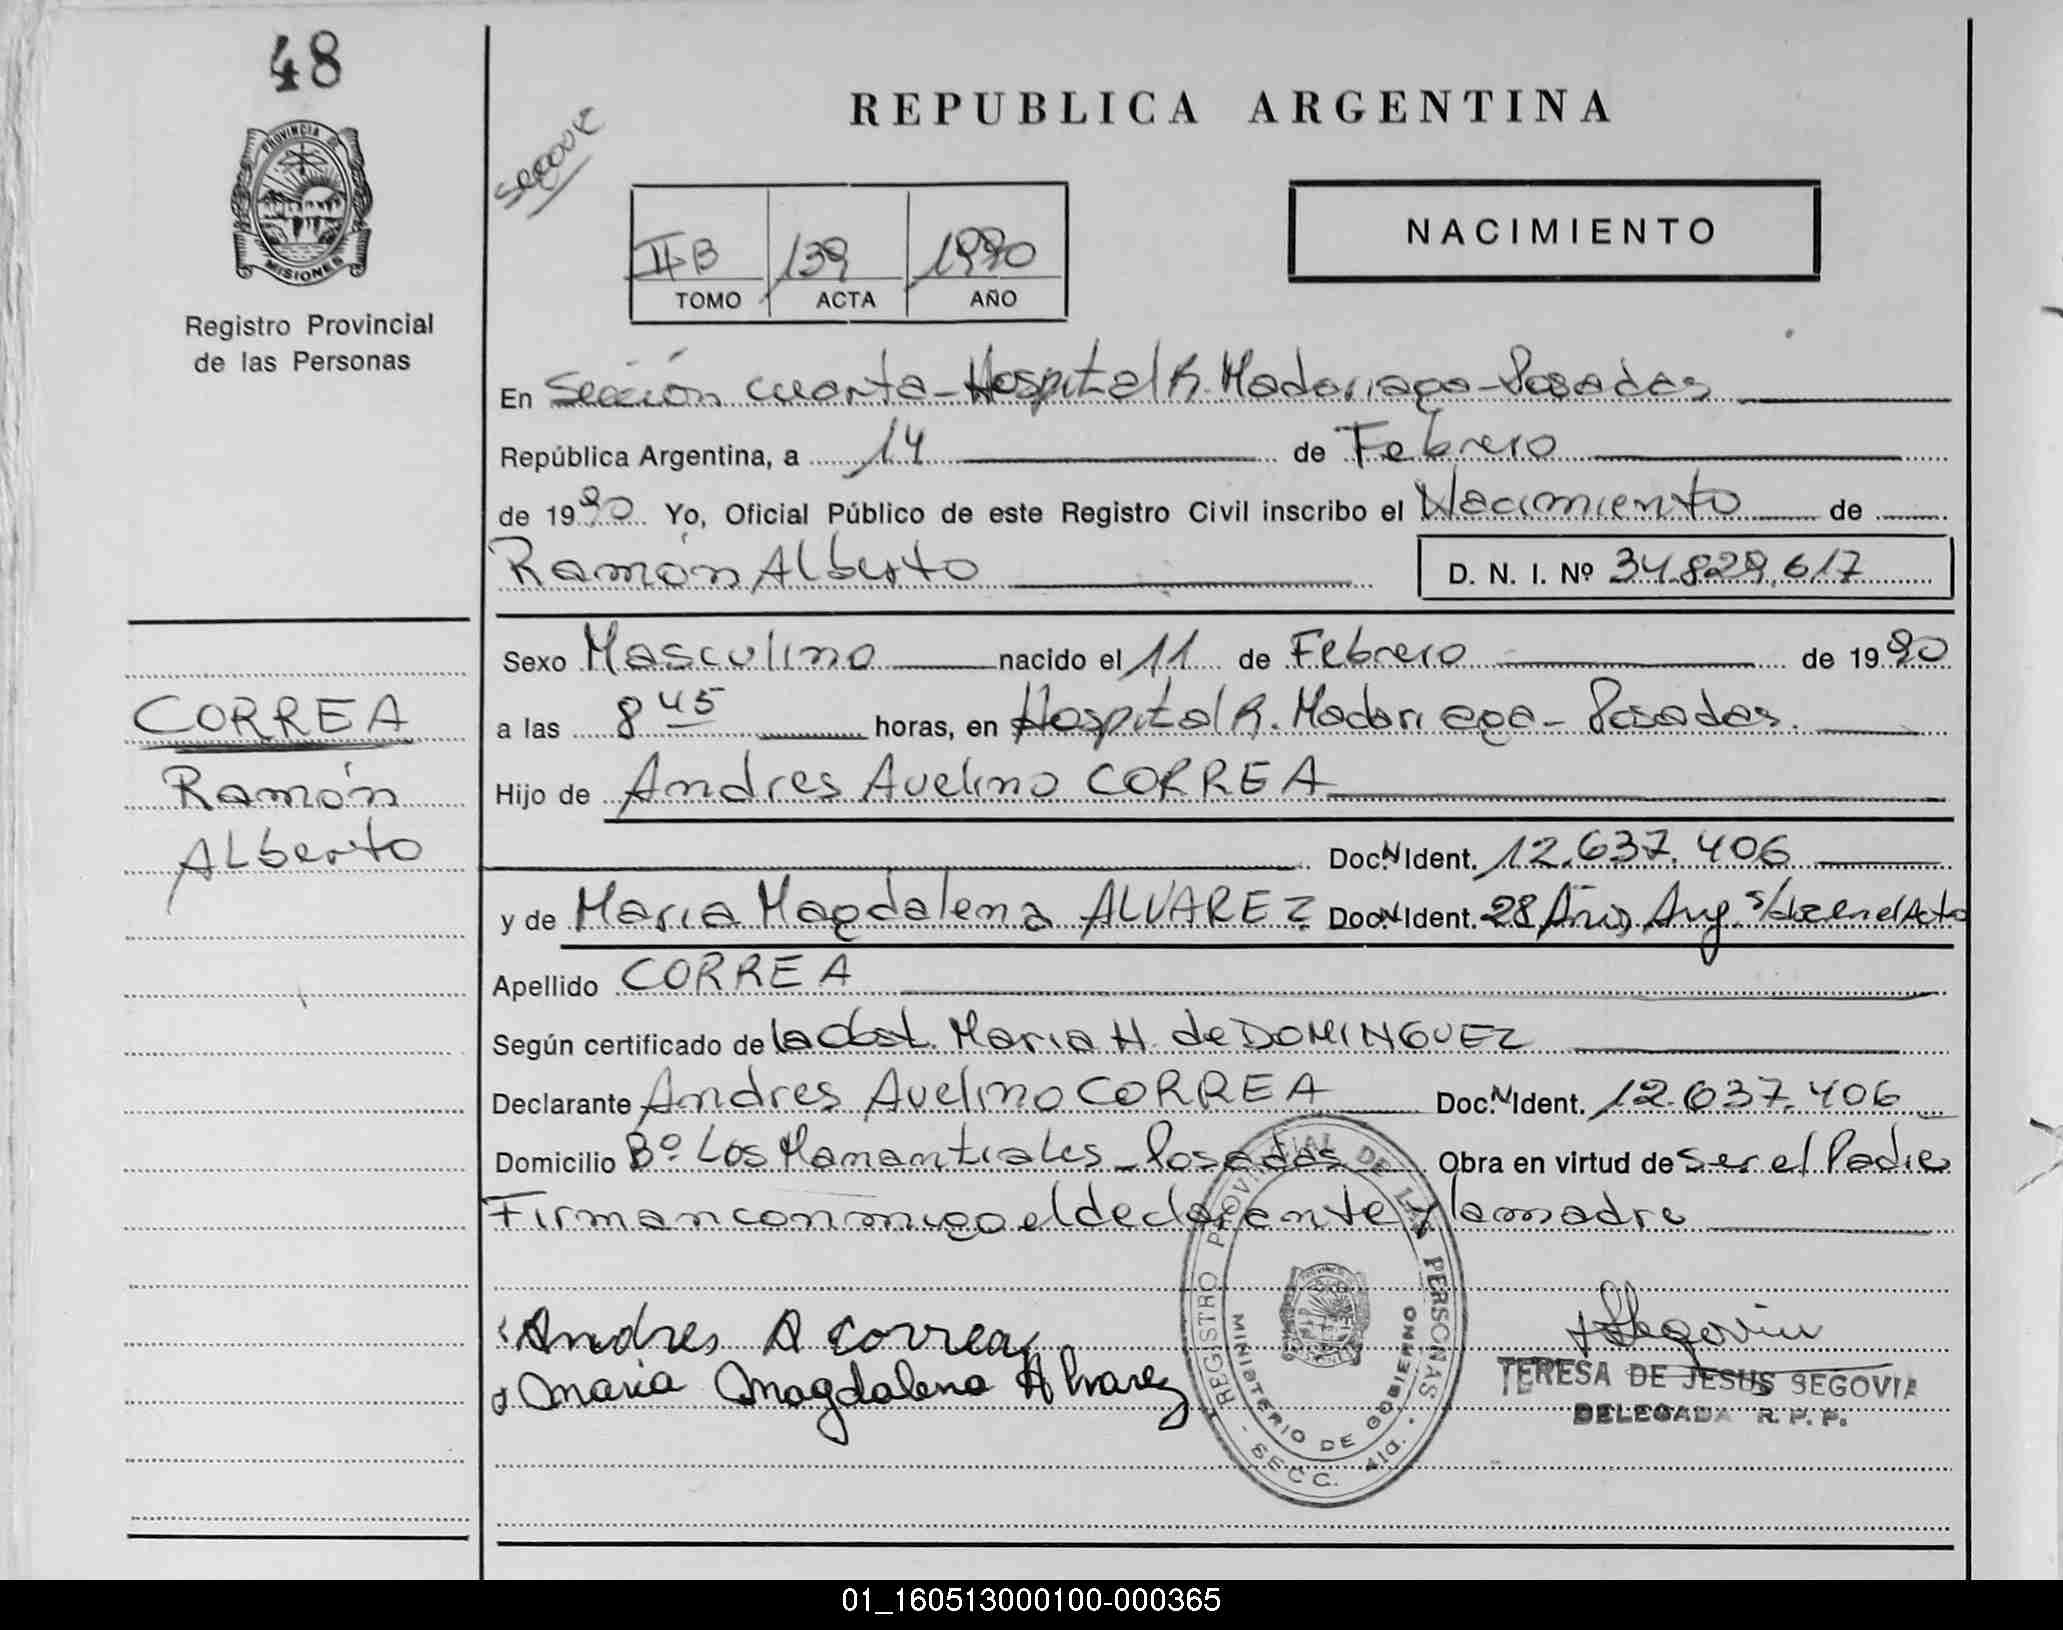 48
PROVINCIA DE
MISIONES
Registro Provincial
de las Personas
REPUBLICA ARGENTINA
II B 139 1990
TOMO ACTA AÑO
NACIMIENTO
En Sección cuarta - Hospital R. Madariaga - Posadas
República Argentina, a 14 de Febrero
de 1990 Yo, Oficial Público de este Registro Civil inscribo el Nacimiento de
Ramón Alberto D. N. I. Nº 34.829.617
Sexo Masculino nacido el 11 de Febrero de 1990
a las 8 45 horas, en Hospital R. Madariaga - Posadas.
Hijo de Andres Avelino CORREA
Doc. N Ident. 12.637.406
y de Maria Magdalena ALVAREZ Doc. N Ident. 28 Años, Arg. s/doc en el Acto
Apellido CORREA
Según certificado de la Obst. Maria H. de DOMINGUEZ
Declarante Andres Avelino CORREA Doc. N Ident. 12.637.406
Domicilio Bº Los Manantiales - Posadas Obra en virtud de ser el Padre
Firman conmigo el declarante y la madre
CORREA
Ramón
Alberto
Andres A Correa
Maria Magdalena Alvarez
REGISTRO PROVINCIAL DE LAS PERSONAS
MINISTERIO DE GOBIERNO
SECC. 4ta.
Segovia
TERESA DE JESUS SEGOVIA
DELEGADA R. P. P.
01_160513000100-000365